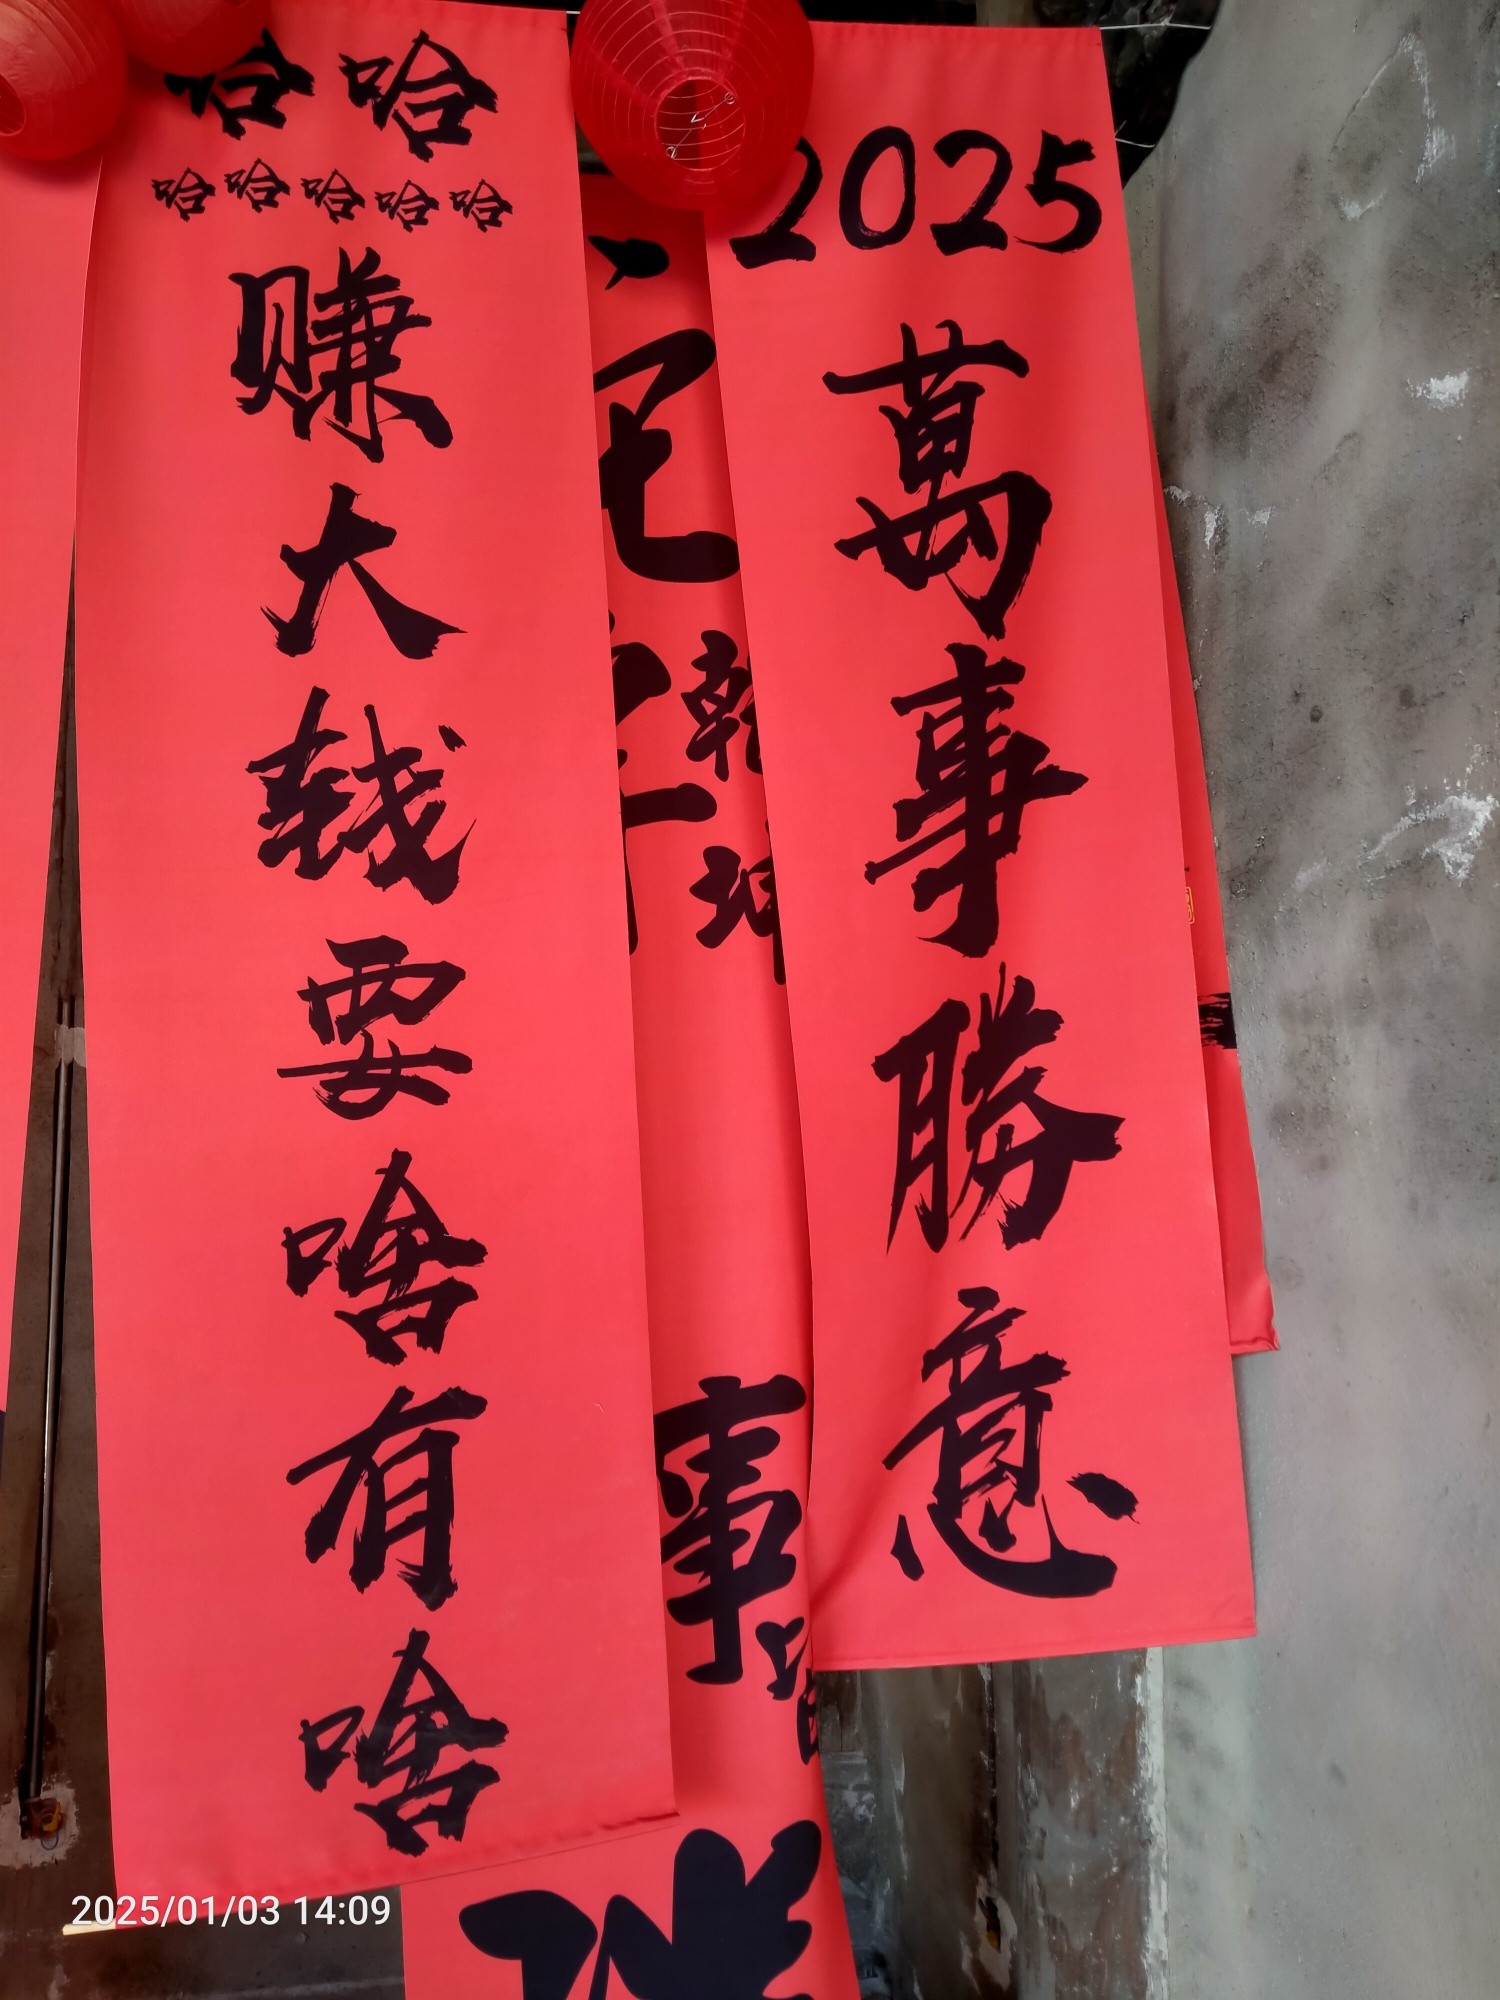 哈哈
哈哈哈哈哈
赚大钱要啥有啥
2025
萬事勝意
乾坤
事
2025/01/03 14:09